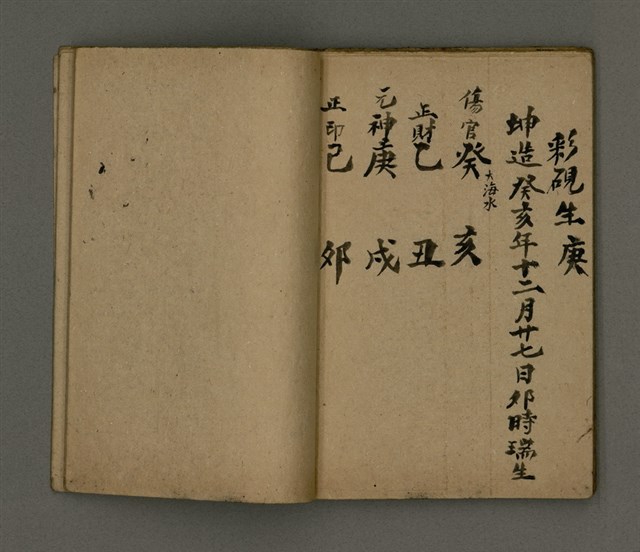 彩硯生庚
坤造癸亥年十二月廿七日卯時瑞生
傷官癸亥
大海水
正財乙丑
元神庚戌
正印己卯